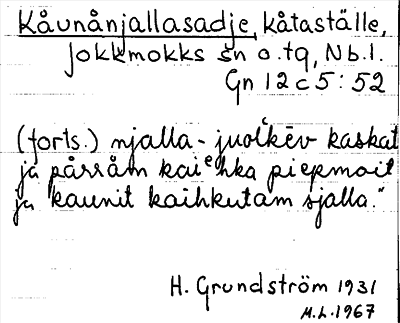 Kåunånjallasadje, kåtaställe,
Jokkmokks sn o. tg, Nb. l.
Gn 12 c 5 : 52
(forts.) njalla-juolkēv kaskat
ja pårråm kaiᵉhka piepmait
ja kaunit kaihkutam sjalla."
H. Grundström 1931
M.L. 1967